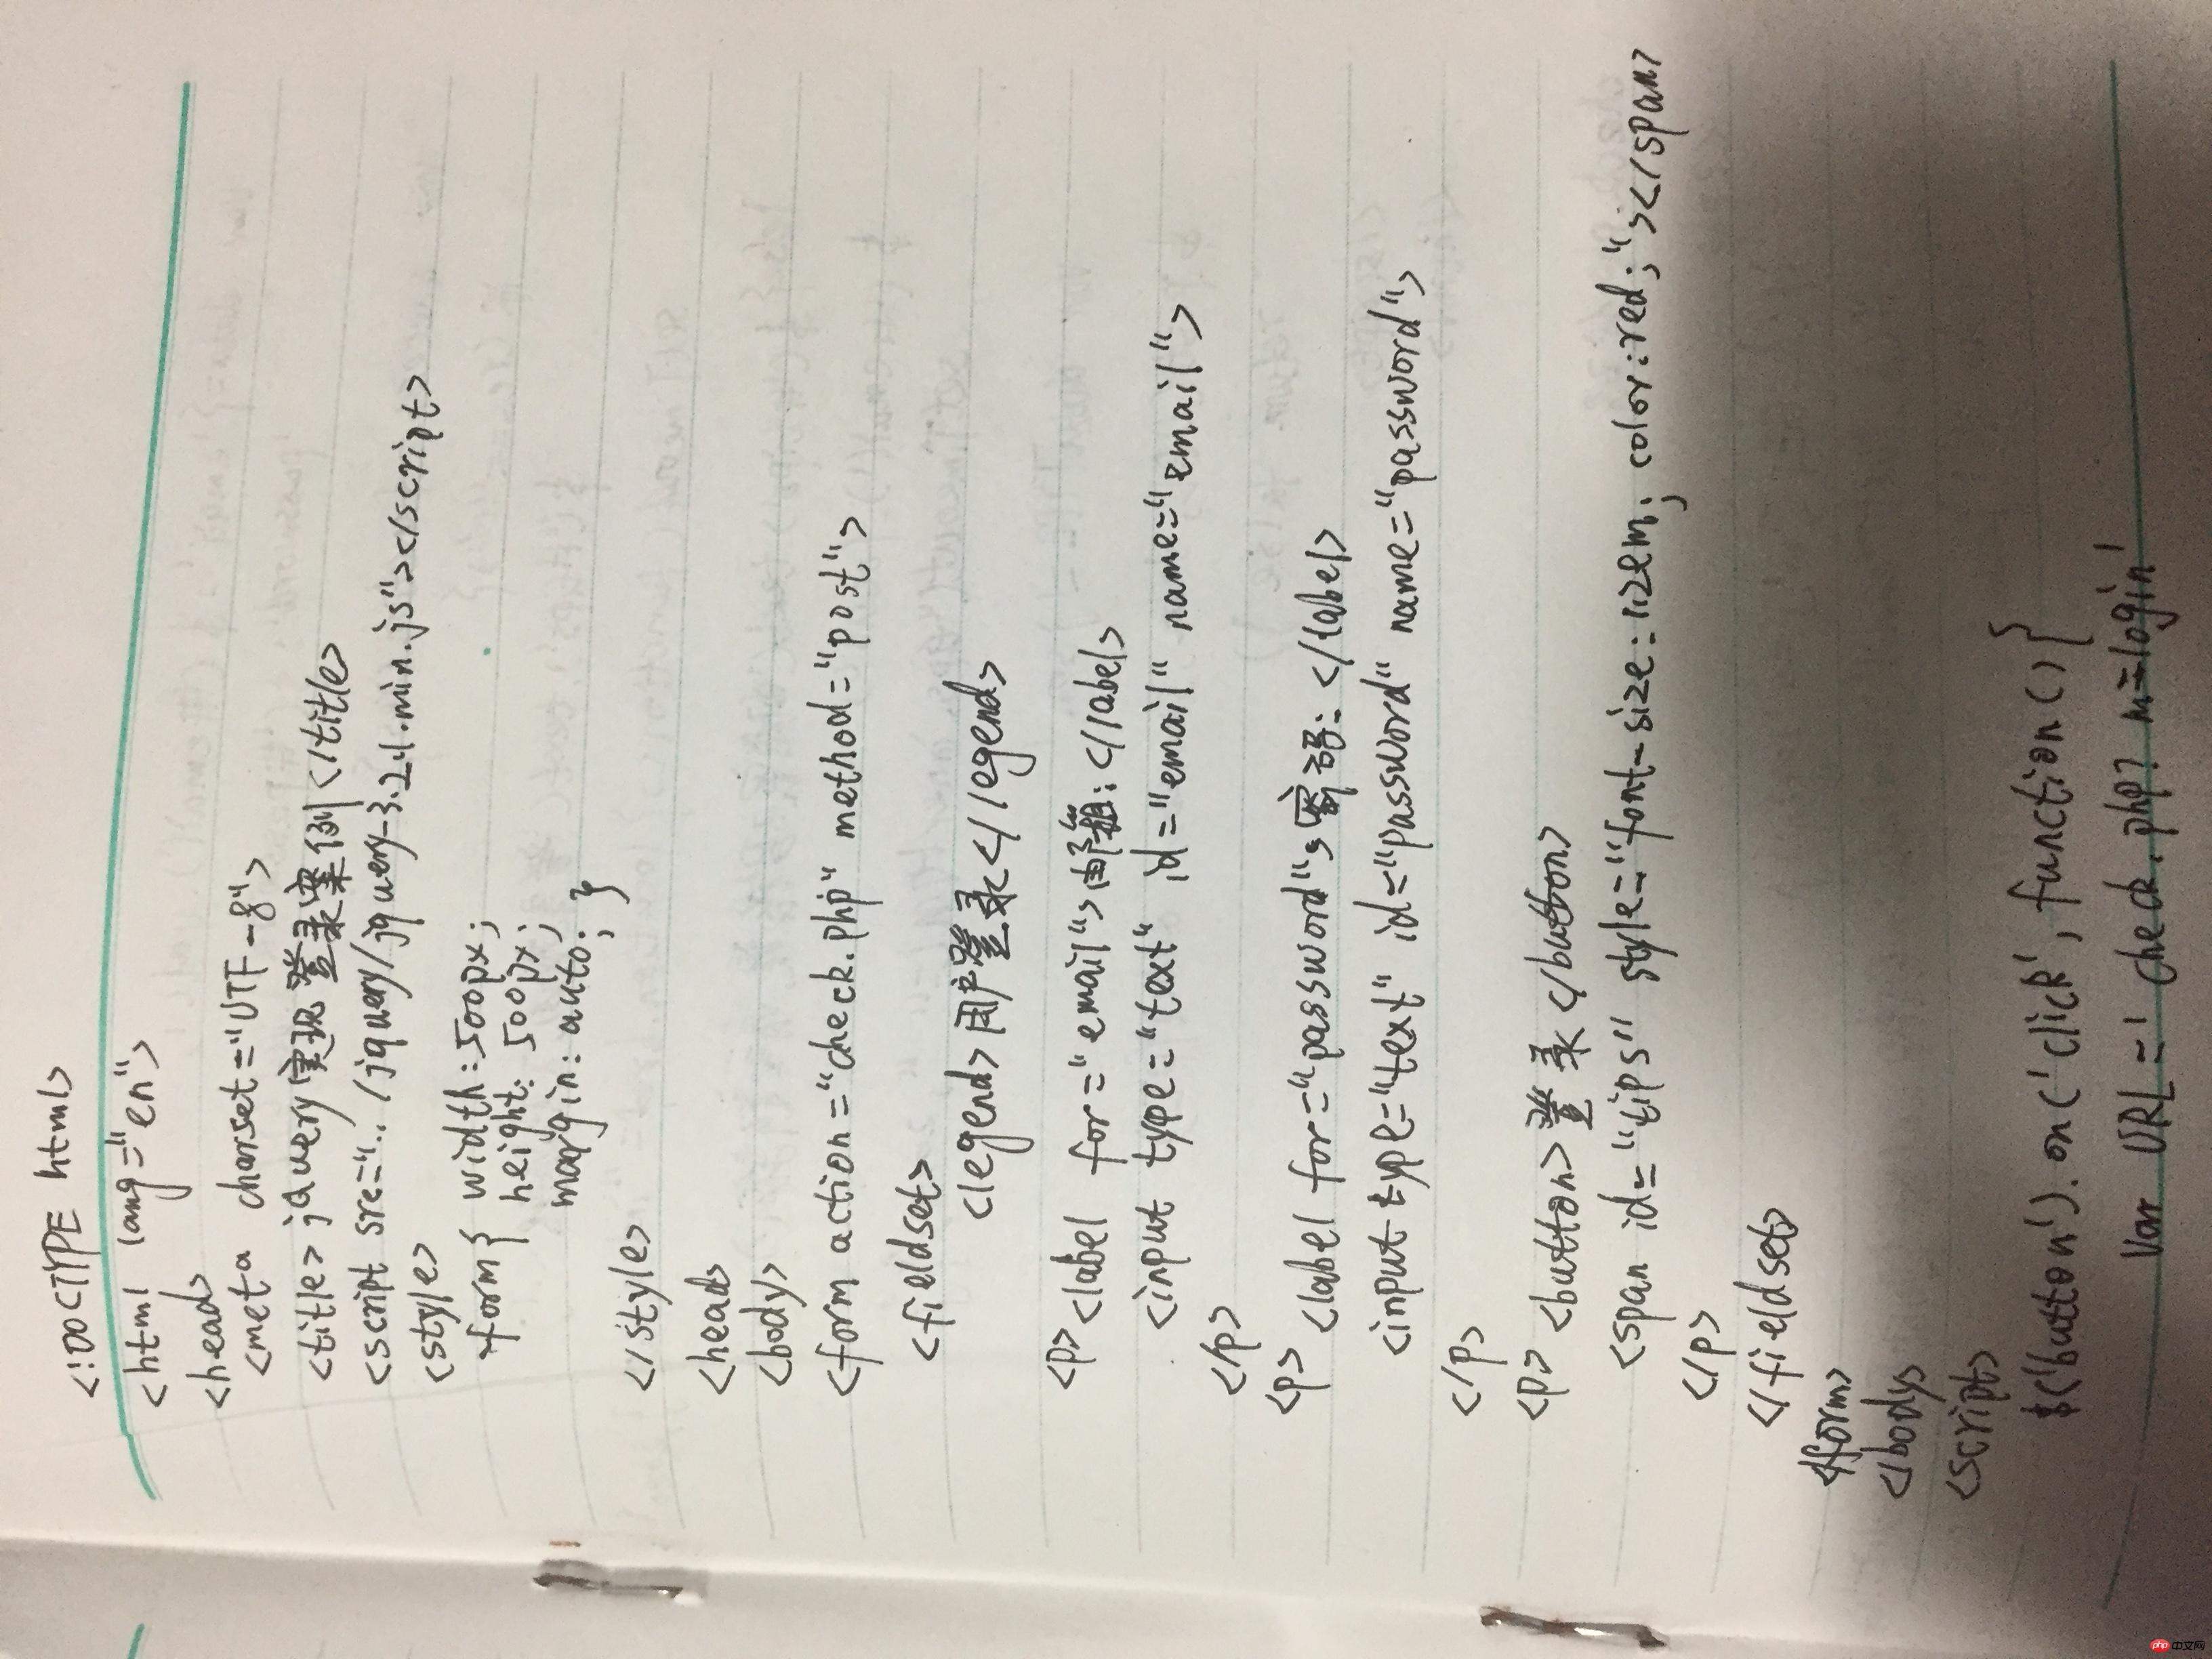 <!DOCTYPE html>
<html lang="en">
<head>
<meta charset="UTF-8">
<title>jquery实现登录案例</title>
<script src="../jquery/jquery-3.2.1.min.js"></script>
<style>
form{ width:500px;
height: 500px;
margin:auto; }
</style>
<head>
<body>
<form action="check.php" method="post">
<fieldset>
<legend>用户登录</legend>
<p><label for="email">邮箱:</label>
<input type="text" id="email" name="email">
</p>
<p><label for="password">密码:</label>
<input type="text" id="password" name="password">
</p>
<p><button>登录</button>
<span id="tips" style="font-size:1.2em; color:red;"></span>
</p>
</fieldset>
</form>
</body>
<script>
$('button').on('click', function(){
var URL='check.php?m=login'
php 中文网